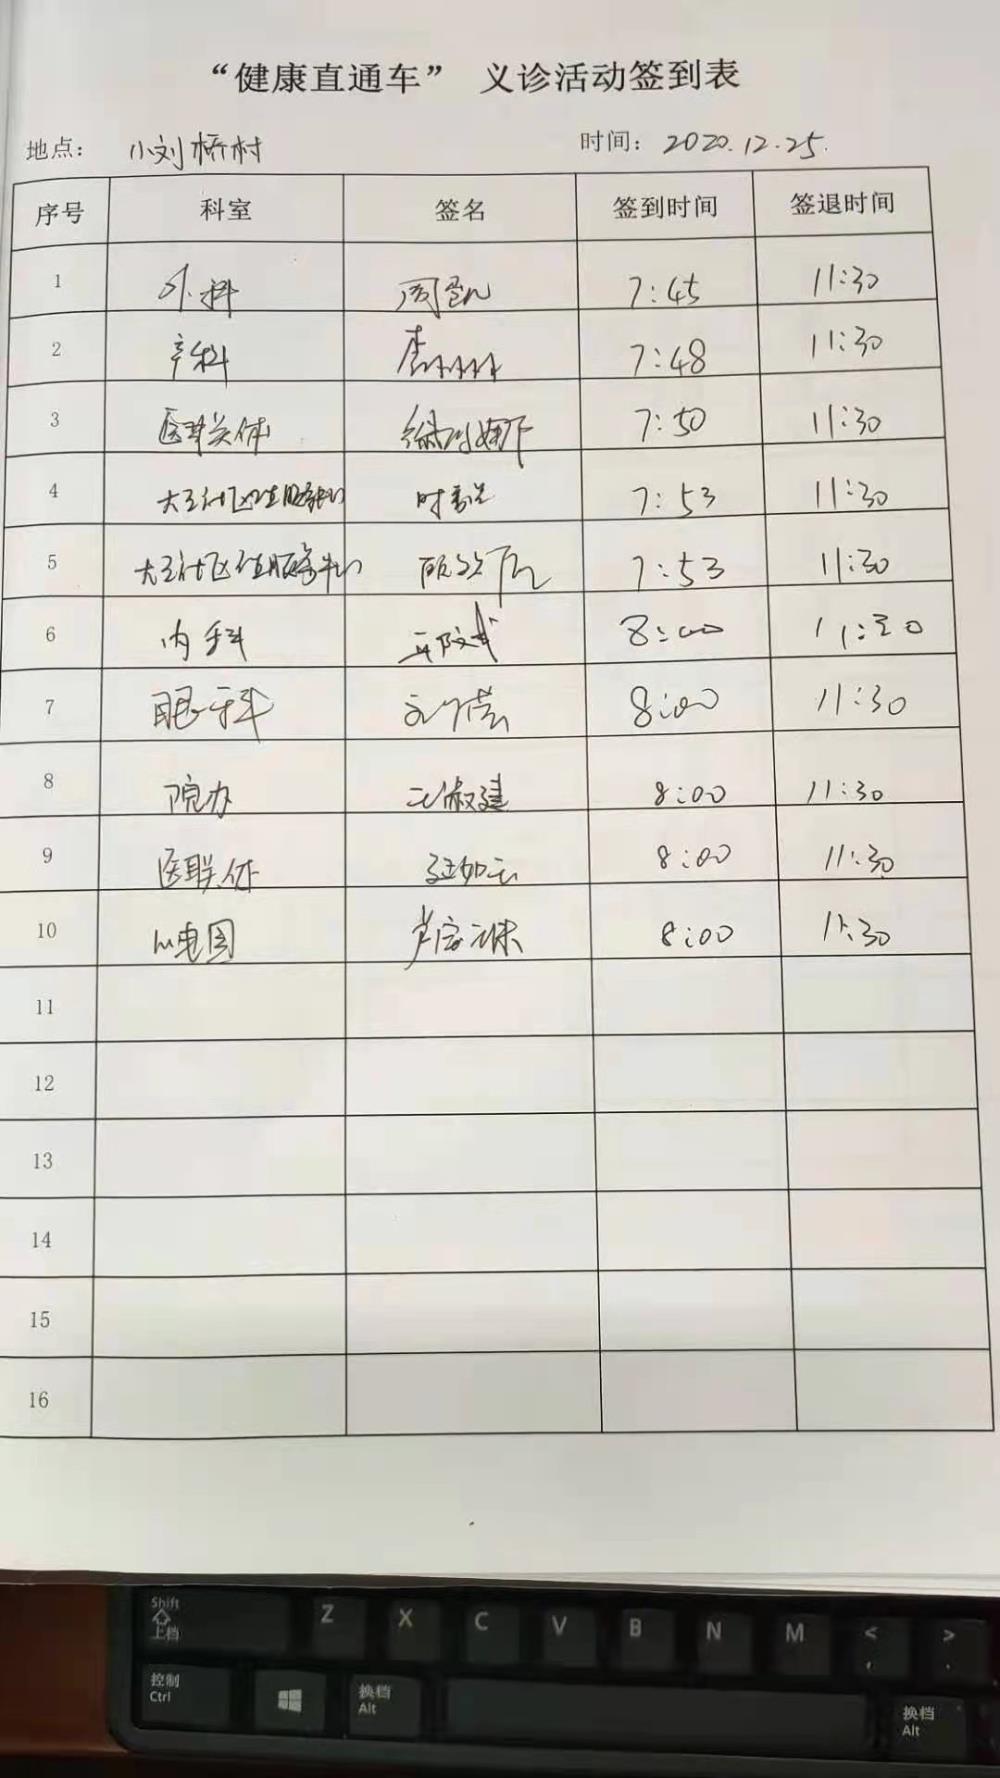 “健康直通车” 义诊活动签到表
地点： 小刘桥村 时间： 2020.12.25.
序号 科室 签名 签到时间 签退时间
1 外科 周 7:45 11:30
2 产科 李 7:48 11:30
3 医联体 7:50 11:30
4 社区 7:53 11:30
5 社区 7:53 11:30
6 内科 8:00 11:30
7 眼科 刘 8:00 11:30
8 院办 8:00 11:30
9 医联体 8:00 11:30
10 心电图 8:00 11:30
11
12
13
14
15
16
Shift
上档
Z X C V B N M < >
, .
控制
Ctrl
换档
Alt
换档
Alt